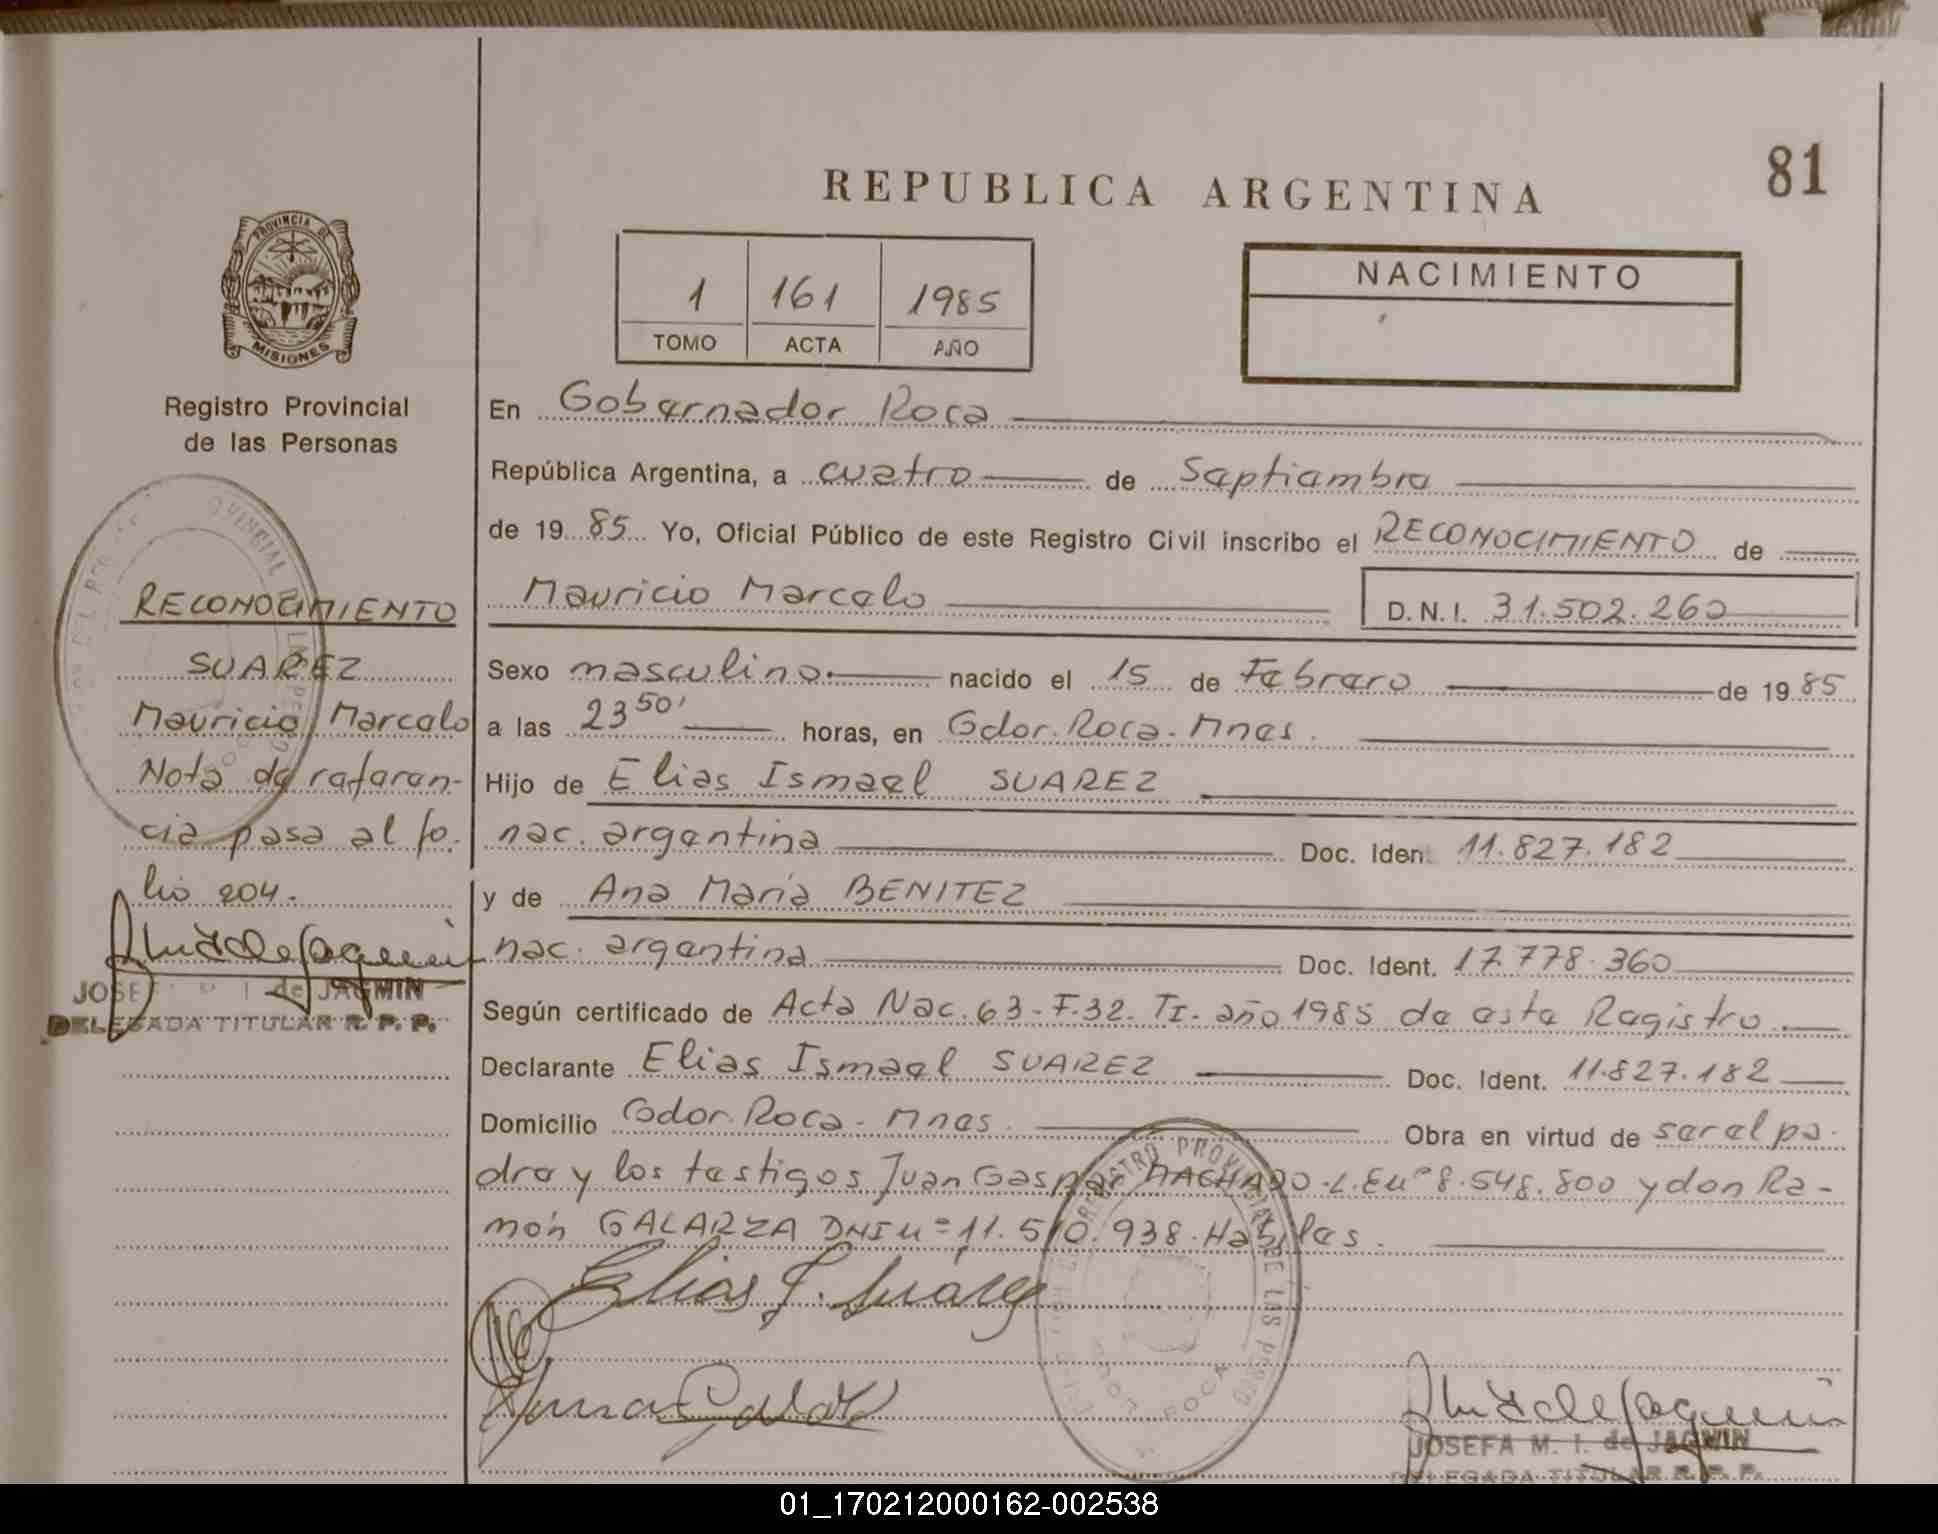 REPUBLICA ARGENTINA
81
1 161 1985
TOMO ACTA AÑO
NACIMIENTO
PROVINCIA DE
MISIONES
Registro Provincial
de las Personas
RECONOCIMIENTO
SUAREZ
Mauricio Marcelo
Nota de referen-
cia pasa al fo-
lio 204.
JOSEFA M. I. de JAGMIN
DELEGADA TITULAR R. P. P.
En Gobernador Roca
República Argentina, a cuatro de Septiembre
de 1985 Yo, Oficial Público de este Registro Civil inscribo el RECONOCIMIENTO de
Mauricio Marcelo D.N.I. 31.502.260
Sexo masculino. nacido el 15 de Febrero de 1985
a las 23 50' horas, en Gdor. Roca - Mnes.
Hijo de Elias Ismael SUAREZ
nac. argentina Doc. Ident. 11.827.182
y de Ana María BENITEZ
nac. argentina Doc. Ident. 17.778.360
Según certificado de Acta Nac. 63 - F.32. TI. año 1985 de este Registro.
Declarante Elias Ismael SUAREZ Doc. Ident. 11.827.182
Domicilio Gdor. Roca - Mnes. Obra en virtud de ser el pa-
dre y los testigos Juan Gaspar MACHADO. L.E nº 8.548.800 y don Ra-
món GALARZA DNI nº 11.510.938. Habiles.
Elias I. Suárez
JOSEFA M. I. de JAGMIN
DELEGADA TITULAR R. P. P.
01_170212000162-002538